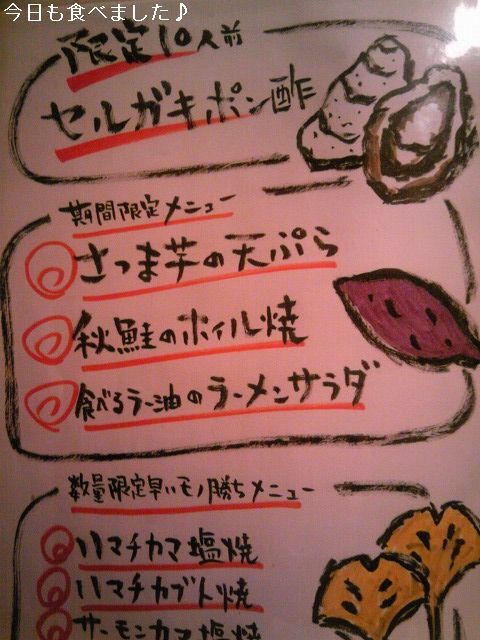 今日も食べました♪
限定10人前
セルガキポン酢
期間限定メニュー
さつま芋の天ぷら
秋鮭のホイル焼
食べるラー油のラーメンサラダ
数量限定早いモノ勝ちメニュー
ハマチカマ塩焼
ハマチカブト焼
サーモンカマ塩焼